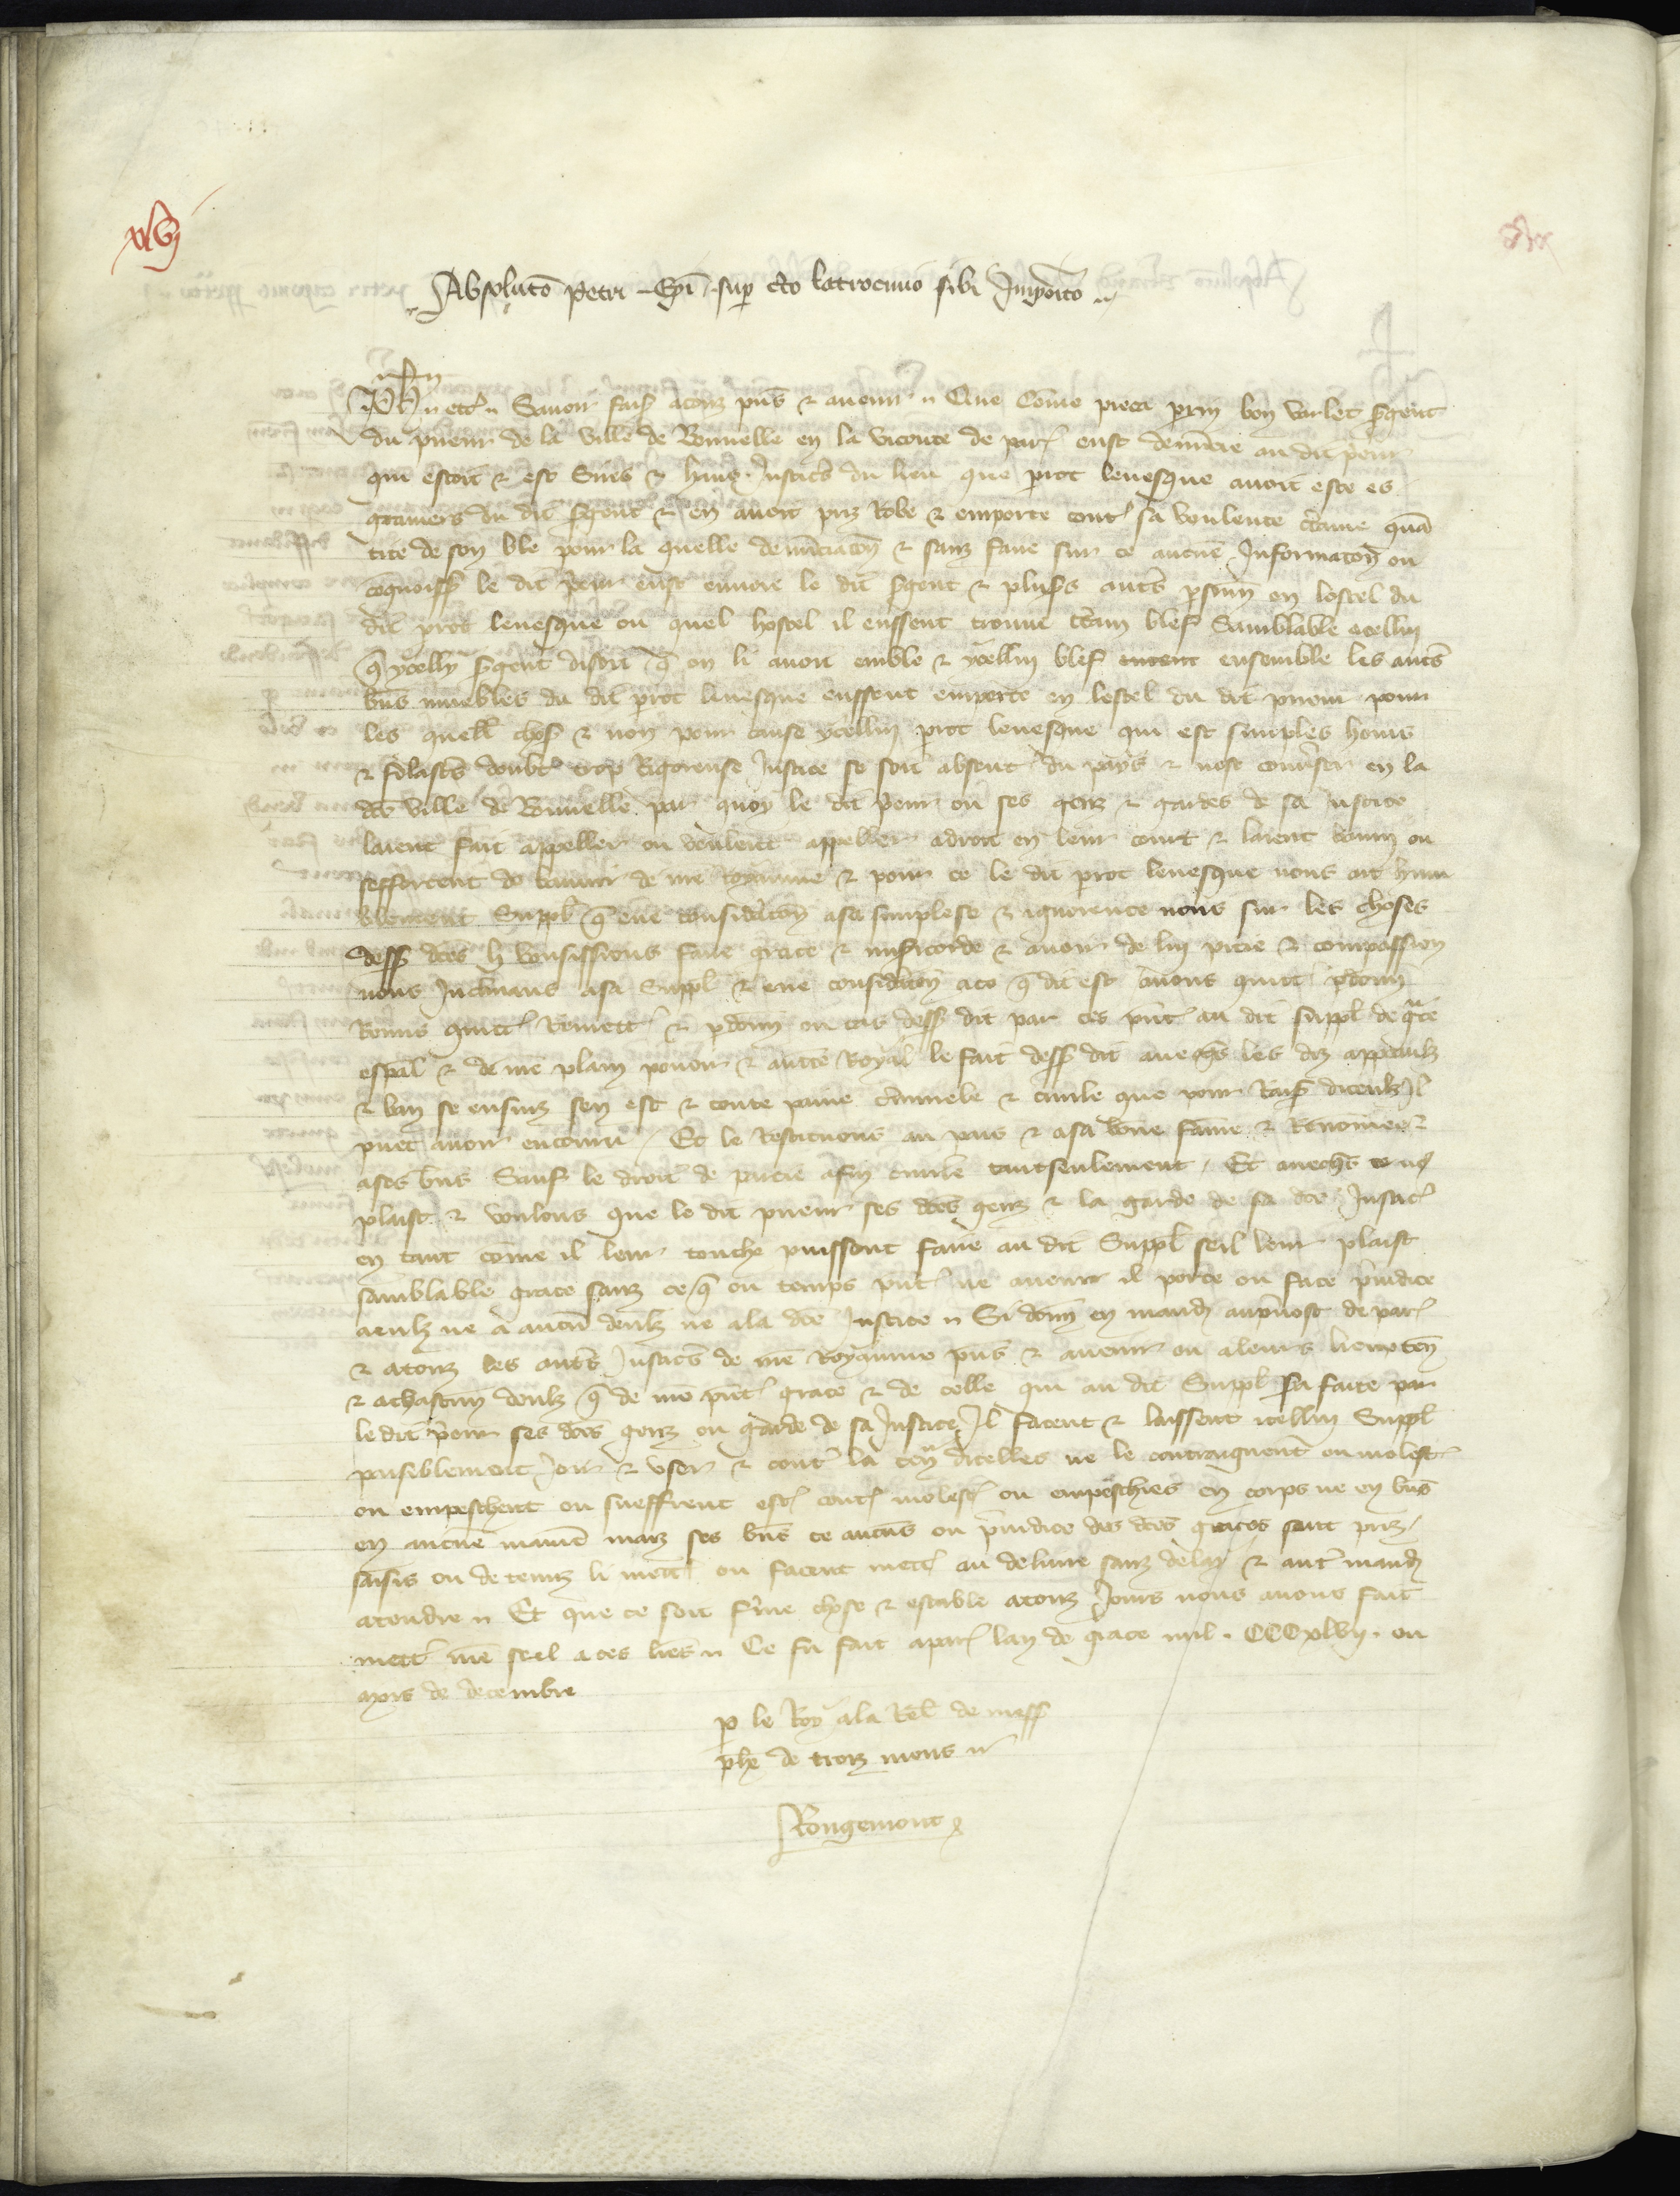 xlvj
Absoluto Petri Epi sup cto latrocinio sibi Imposito
Ph etc Savoir faiz a touz pns & avenir Que Come pieca perrin bon varlet sergent
du prieur de la ville de Bonnelle en la viconte de par eust denuncie au dit prieur
qui estoit & est Sires & haus Justiciers du lieu que prot levesque avoit este es
graniers du dit sergent & en avoit pris Robe & emporte cont sa voulente certaine quan
tite de son ble pour la quelle denunciaton & sanz faire sur ce aucune Informaton ou
cognoiss le dit prieur eust envoie le dit sergent & plusrs autrs persones en lostel du
dit prot levesque ou quel hostel il eussent trouve certain blef Samblable a cellui
q ycelly sergent disoit q on li avoit emble & ycellui blef ensemble les autrs
bns muebles du dit prot levesque eussent emporte en lostel du dit prieur pour
les quell choses & non pour cause ycellui prot levesque qui est simples homs
& doubt trop Rigoreuse Justice se soit absent du pays & nose converser en la
dce ville de Bonnelle par quoy le dit prieur ou ses genz & gardes de sa Justice
laient fait appeller ou veulent appeller a droit en leur court & laient banni ou
sefforcent de bannir de nre Royaume & pour ce le dit prot levesque nous ait hum
blement Suppl q eue consideraton a sa simplesse & ignorence nous sur les choses
dess dces li voussissions faire grace & misericorde & avoir de lui pitie & compassion
nous Inclinans a sa Suppl & eue consideraton a ce q dit est avons quitt pdonn
Remis quitt Remett & pdonn ou cas dess dit par ces pnt au dit suppl de grace
espal & de nre plain povoir & auctte Royal le fait dess dit avecqs les diz appeaulz
& ban se ensuiz sen est & toute paine criminele & civile que pour Rais diceulz Il
puet avoir encouru Et le Restituons au pais & a sa bone fame & Renomee &
a ses bns Sauf le droit de partie afin civile tantseulement Et avecqs ce no
plaist & voulons que le dit prieur ses dces genz & la garde de sa dce Justic
en tant come il leur touche puissent faire au dit Suppl seil leur plaist
samblable grace sanz ce q ou temps pnt ne avenir il porte ou face preiudice
a eulz ne a aucun deulz ne a la dce Justice Si donn en mandt au prevost de par
& a touz les autrs Justicrs de nre Royaume pns & avenir ou a leurs lieuxten
& a chascun deulz q de nre pnt grace & de celle qui au dit Suppl sera faite par
le dit prieur ses dces genz ou garde de sa Justice Il facent & laissent icellui Suppl
paisiblement Joir & user & cont la ten dicelles ne le contraignent ou molest
ou empeschent ou sueffrent estre cont molest ou empeschies en corps ne en bns
en aucune maniere maiz ses bns se aucuns ou preiudice des dces graces sont priz
saisis ou detenuz li mett ou facent mett au delivre sanz delay & aut mandt
atendre Et que ce soit ferme chose & estable a touz Jours nous avons fait
mettr nre seel a ces lres Ce fu fait a par lan de grace mil CCCxlvij ou
moys de decembre
p le Roy a la Rel de mess
phe de troiz mons
Rougemont